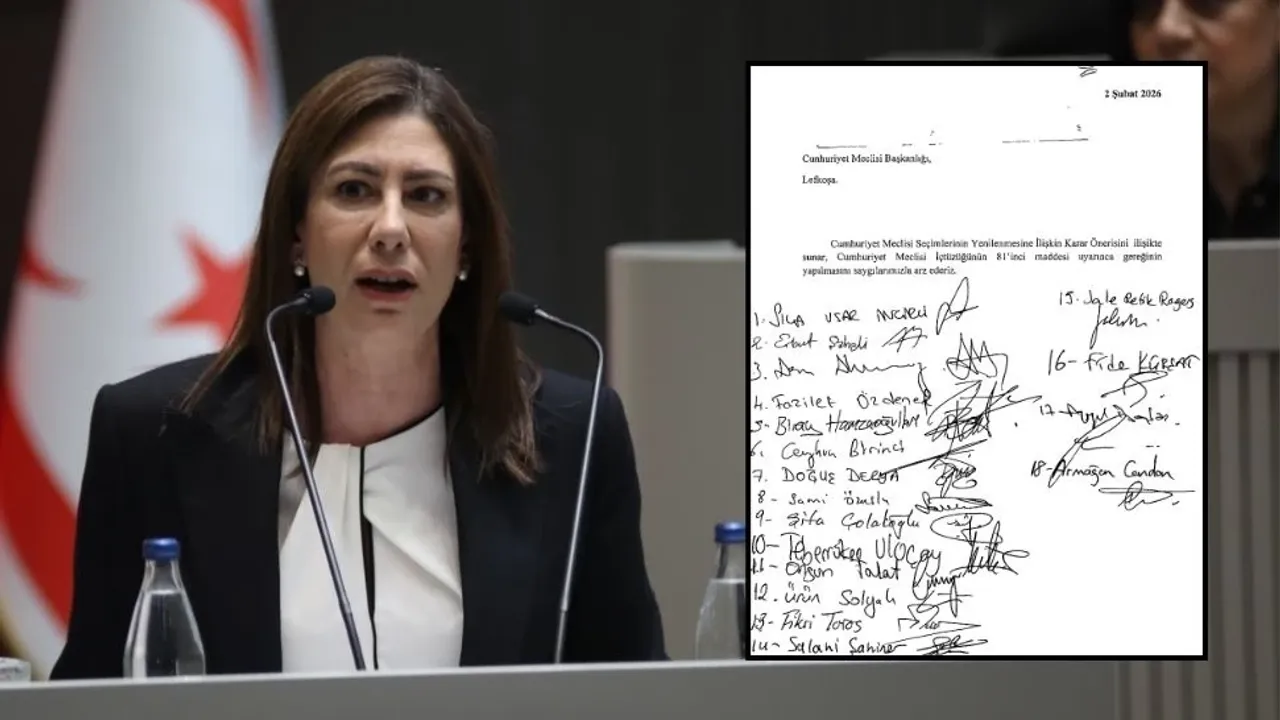 2 Şubat 2026
Cumhuriyet Meclisi Başkanlığı,
Lefkoşa.
Cumhuriyet Meclisi Seçimlerinin Yenilenmesine İlişkin Karar Önerisini ilişikte
sunar, Cumhuriyet Meclisi İçtüzüğünün 81'inci maddesi uyarınca gereğinin
yapılmasını saygılarımızla arz ederiz.
1. SILA USAR İNCİRLİ
2. Erkut Şahali
3.
4. Fazilet Özdenefe
5- Biray Hamzaoğulları
6. Ceyhun Birinci
7. DOĞUŞ DERYA
8- Sami Özuslu
9- Şifa Çolakoğlu
10- Teberrüken ULUÇAY
11- Ongun Talat
12. Ürün Solyalı
13- Fikri Toros
14- Salahi Şahiner
15. Jale Refik Rogers
16- Fide KÜRŞAT
17-
18- Armağan Candan